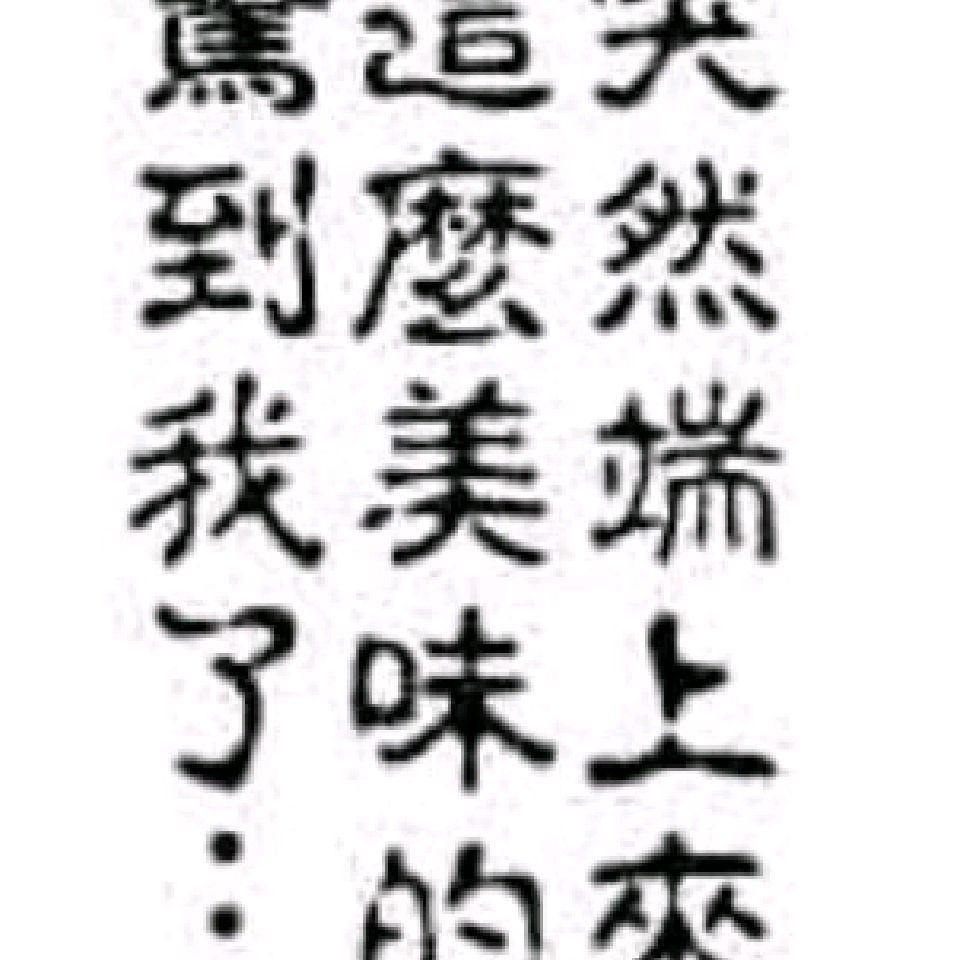 突然端上來
這麼美味的
驚到我了⋯